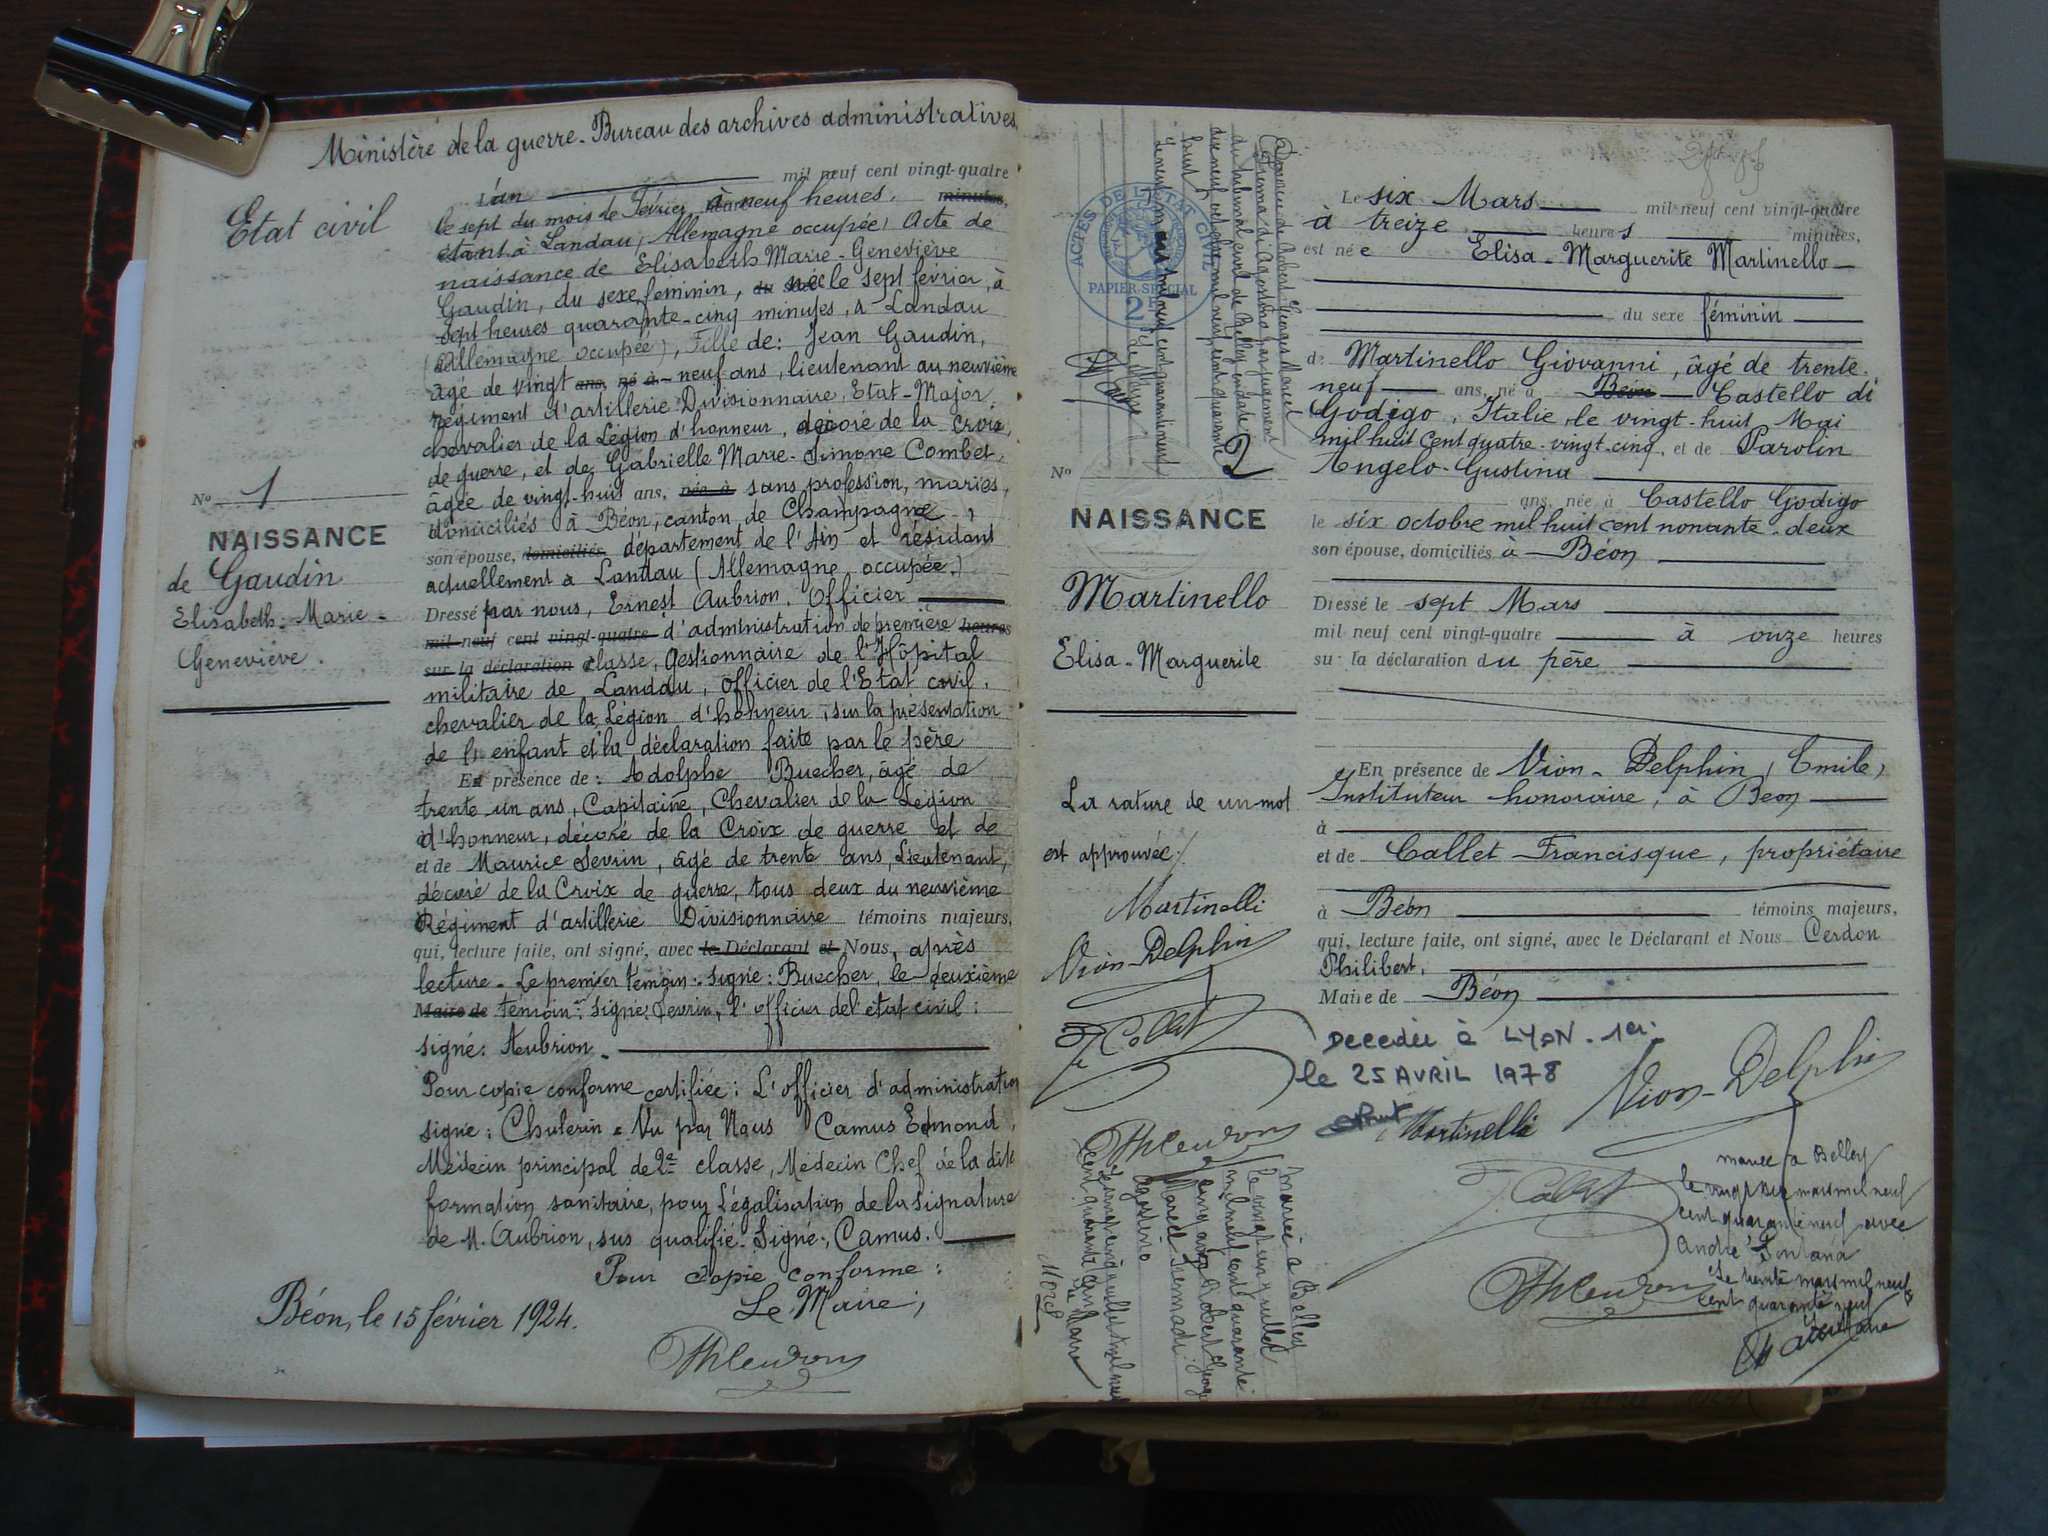 Ministère de la guerre - Bureau des archives administratives.
Etat civil
L'an mil neuf cent vingt-quatre
le sept du mois de Février à neuf heures, minutes,
étant à Landau, Allemagne occupée, Acte de
naissance de Elisabeth Marie-Geneviève
Gaudin, du sexe feminin, née le sept février, à
sept heures quarante-cinq minutes, à Landau
(Allemagne occupée), Fille de: Jean Gaudin,
âgé de vingt ans, né à - neuf ans, lieutenant au neuvième
régiment d'artillerie Divisionnaire, Etat-Major,
chevalier de la Légion d'honneur, décoré de la croix
de guerre, et de Gabrielle Marie-Simone Combet,
âgée de vingt-huit ans, née à sans profession, mariés,
domiciliés à Béon, canton de Champagne,
son épouse, domiciliés département de l'Ain et résidant
actuellement à Landau (Allemagne occupée.)
Dressé par nous, Ernest Aubrion, Officier
mil neuf cent vingt-quatre d'administration de première heures
sur la déclaration classe, Gestionnaire de l'Hôpital
militaire de Landau, Officier de l'Etat civil,
chevalier de la Légion d'honneur, sur la présentation
de l'enfant et la déclaration faite par le père
En présence de: Adolphe Buecher, âgé de
trente un ans, Capitaine, Chevalier de la Légion
d'honneur, décoré de la Croix de guerre et de
et de Maurice Sevrin, âgé de trente ans, Lieutenant,
décoré de la Croix de guerre, tous deux du neuvième
Régiment d'artillerie Divisionnaire témoins majeurs,
qui, lecture faite, ont signé, avec le Déclarant et Nous, après
lecture - Le premier témoin: signé: Buecher, le deuxième
Maire de témoin: signé: Sevrin, l'officier de l'état civil:
signé: Aubrion.
Pour copie conforme certifiée: L'officier d'administration
signé: Chulerin - Vu par Nous Camus Edmond,
Médecin principal de 2e classe, Médecin Chef de la dite
formation sanitaire, pour Légalisation de la Signature
de M. Aubrion, sus qualifié. Signé: Camus.
Pour copie conforme:
Béon, le 15 février 1924.
Le Maire,
No 1
NAISSANCE
de Gaudin
Elisabeth-Marie-
Geneviève.
Divorcée de Robert Georges Marcel
Tremadi Agostino par jugement
du tribunal civil de Belley en date
dix neuf
ACTES DE L'ETAT CIVIL
PAPIER SPECIAL
2F
No 2
NAISSANCE
Martinello
Elisa-Marguerite
La rature de un mot
est approuvée:
Martinelli
Vion-Delphin
Le six Mars mil neuf cent vingt-quatre
à treize heures minutes,
est née Elisa-Marguerite Martinello
du sexe féminin
de Martinello Giovanni, âgé de trente-
neuf ans, né à Béon Castello di
Godégo, Italie, le vingt-huit Mai
mil huit cent quatre-vingt-cinq, et de Parolin
Angelo-Gustina
ans, née à Castello Godigo
le six octobre mil huit cent nonante-deux
son épouse, domiciliés à Béon
Dressé le sept Mars
mil neuf cent vingt-quatre à onze heures
sur la déclaration du père
En présence de Vion-Delphin, Emile,
Instituteur honoraire, à Béon
à
et de Callet Francisque, propriétaire
à Béon témoins majeurs,
qui, lecture faite, ont signé, avec le Déclarant et Nous Cerdon
Philibert,
Maire de Béon
Decedée à LYON - 1er.
le 25 AVRIL 1978
Martinelli
Vion-Delphin
Mariée à Belley
le vingt un juillet
mil neuf cent quarante
cinq avec Robert Georges
Marcel Tremadi
Agostino
Le vingt cinq juillet mil neuf
cent quarante cinq
Le Maire
mariée à Belley
le vingt six mars mil neuf
cent quarante neuf avec
André Fontana
Le trente mars mil neuf
cent quarante neuf